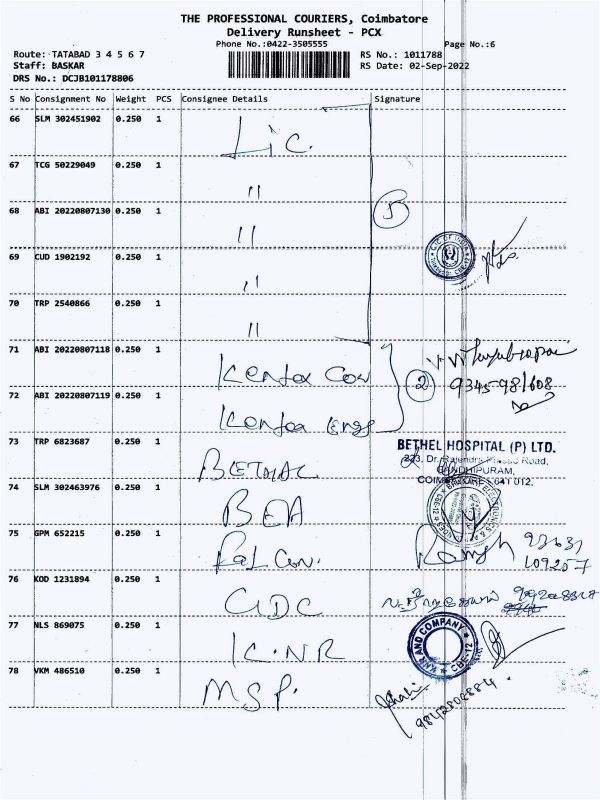 THE PROFESSIONAL COURIERS, Coimbatore
Delivery Runsheet - PCX
Phone No.:0422-3505555
Page No.:6
Route: TATABAD 3 4 5 6 7
RS No.: 1011788
Staff: BASKAR
RS Date: 02-Sep-2022
DRS No.: DCJB101178806
S No Consignment No Weight PCS Consignee Details Signature
66 SLM 302451902 0.250 1 Lic.
67 TCG 50229049 0.250 1 "
68 ABI 20220807130 0.250 1 "
5
69 CUD 1902192 0.250 1 "
70 TRP 2540866 0.250 1 "
71 ABI 20220807118 0.250 1 Kenfox Cov
2
9345-981608
72 ABI 20220807119 0.250 1 Kenfox Engg
73 TRP 6823687 0.250 1 BETHAL
BETHEL HOSPITAL (P) LTD.
223, Dr. Rajendra Prasad Road,
GANDHIPURAM,
COIMBATORE-641 012.
74 SLM 302463976 0.250 1 BEA
75 GPM 652215 0.250 1 Raj Con. Ramesh
76 KOD 1231894 0.250 1 CIDC
77 NLS 869075 0.250 1 K.NR
KNR AND COMPANY
CBE-12
78 VKM 486510 0.250 1 M.S.P.
9842808884.